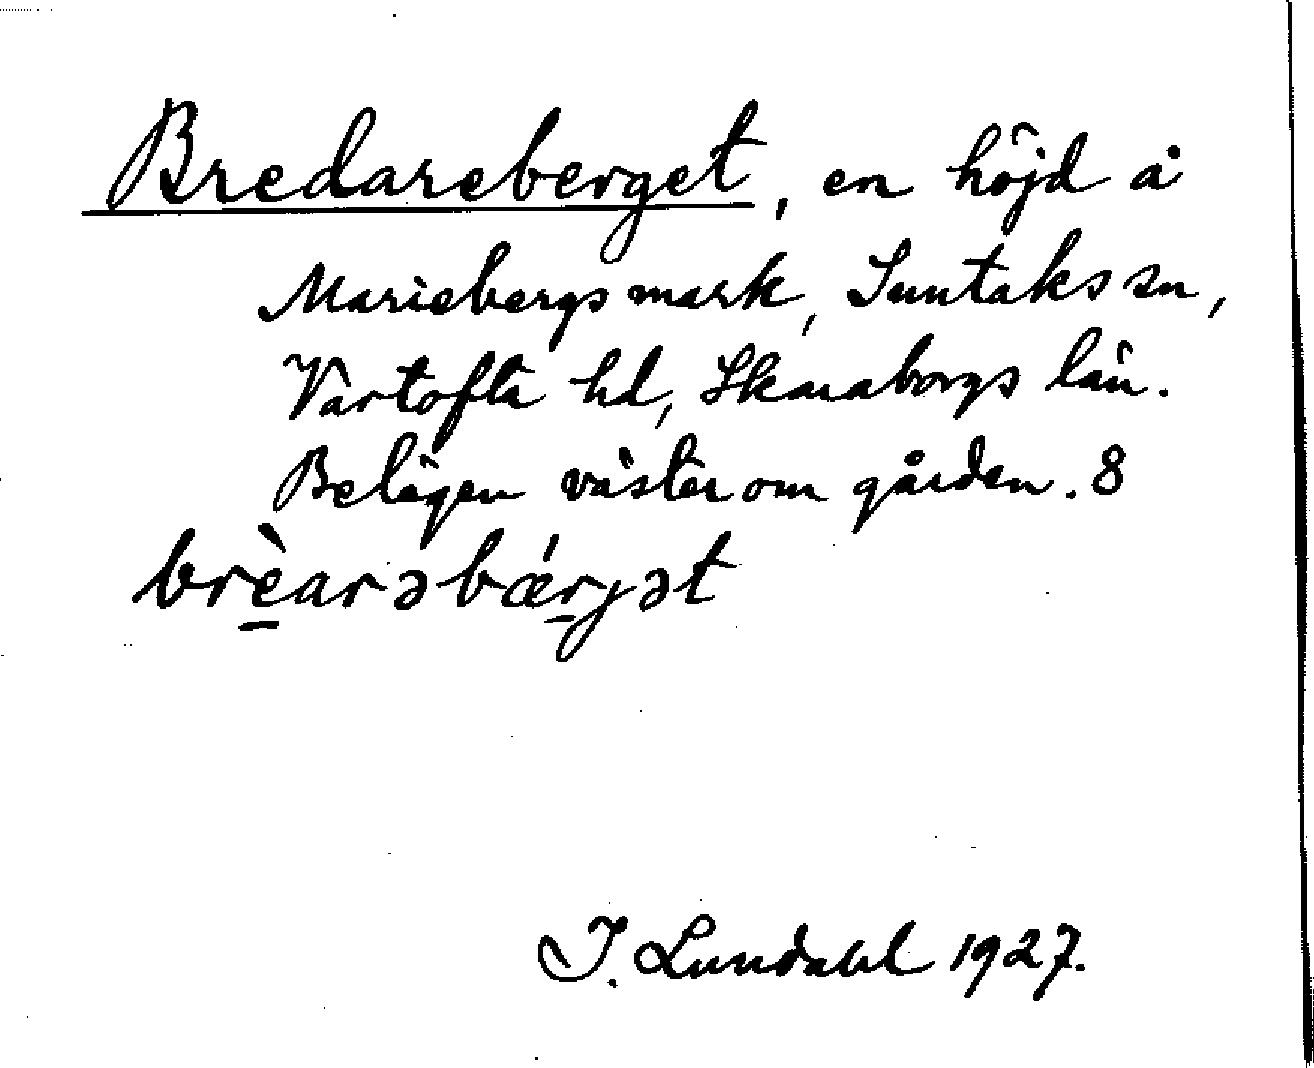 Bredareberget, en höjd å
Mariebergs mark, Suntaks sn,
Vartofta hd, Skaraborgs län.
Belägen väster om gården. 8
brè̱arəbǽṟjət
I. Lundahl 1927.